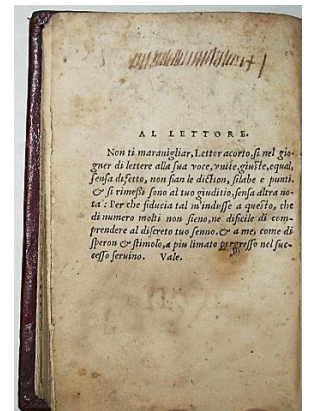 AL LETTORE.
Non ti marauigliar, Lettor acorto, si nel gio
gner di lettere alla sua voce, vnite, giuste, equal,
sensa difetto, non sian le diction, silabe e punti.
& si rimesse sono al tuo giuditio, sensa altra no-
ta: Per che fiducia tal m'indusse a questo, che
di numero molti non sieno, ne dificile di com-
prendere al discreto tuo senno. & a me, come di
speron & stimolo, a piu limato progresso nel suc-
cesso seruino. Vale.